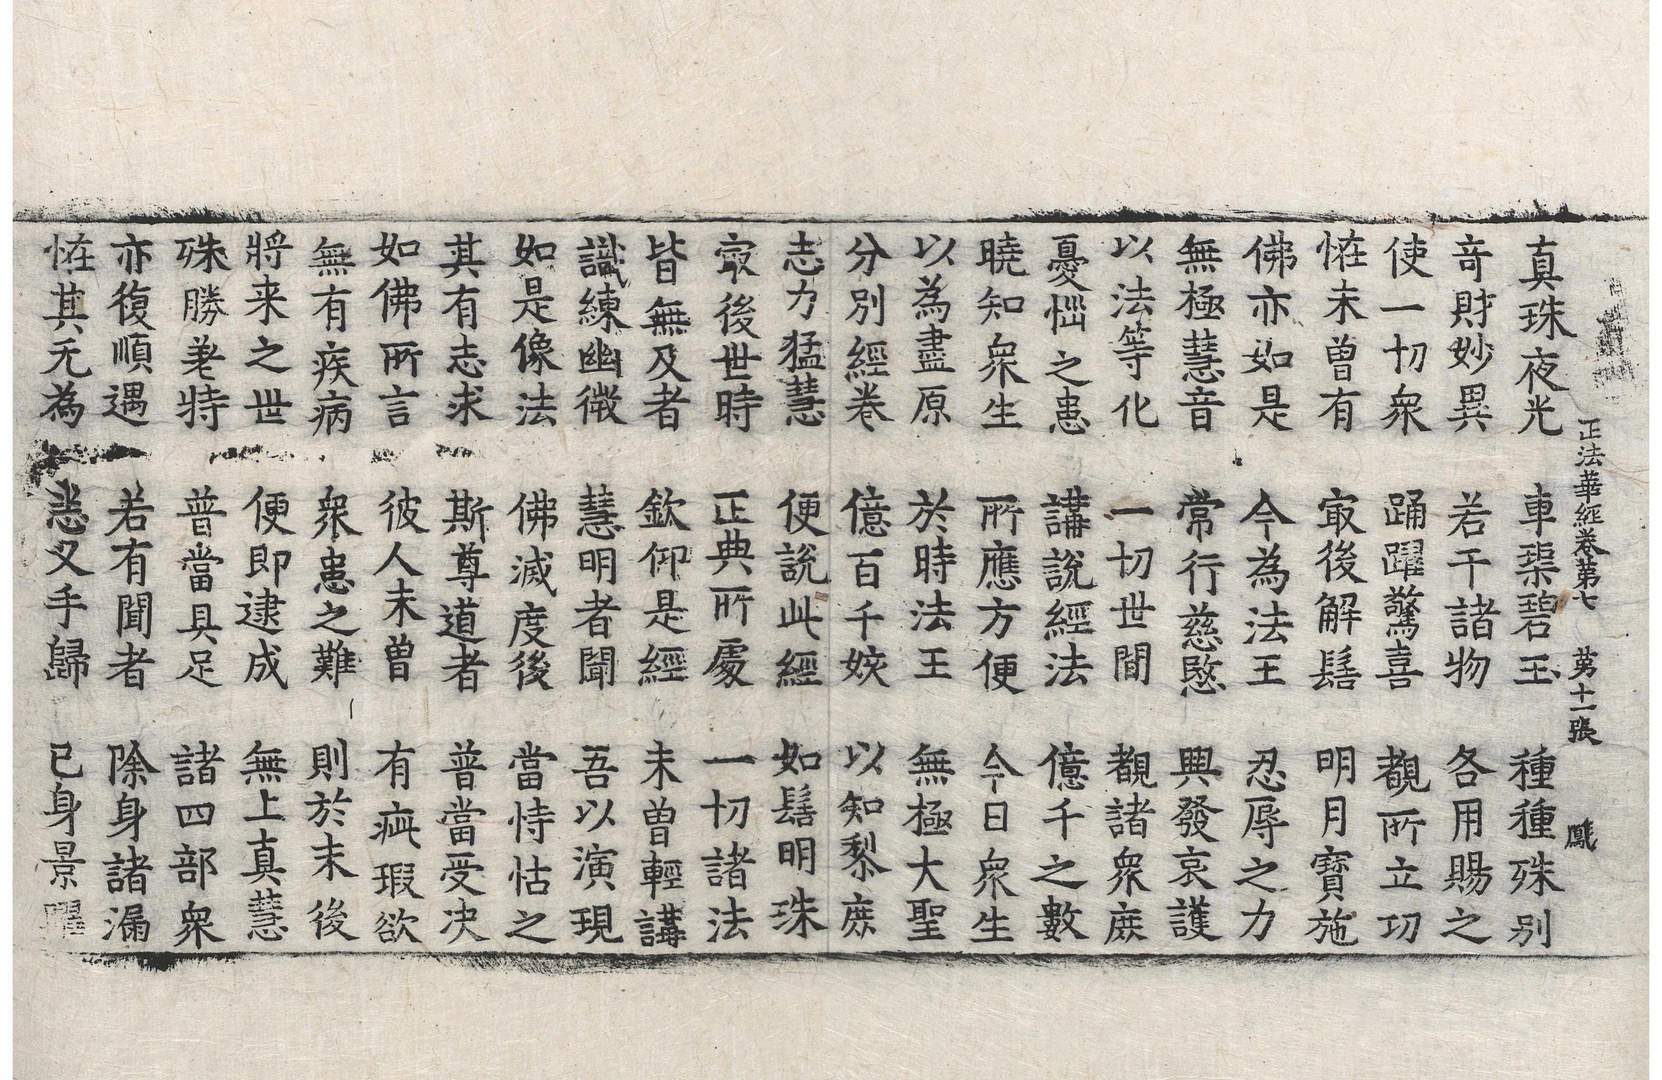 正法華經卷第七　第十一張　鳳
真珠夜光　車𤦲碧玉　種種殊别
竒財妙異　若干諸物　各用賜之
使一切衆　踊躍驚喜　覩所立功
恠未曾有　㝡後解髻　明月寶施
佛亦如是　今為法王　忍辱之力
無極慧音　常行慈愍　興發哀護
以法等化　一切世間　覩諸衆庶
憂惱之患　講說經法　億千之數
曉知衆生　所應方便　今日衆生
以為盡原　於時法王　無極大聖
分別經卷　億百千姟　以知黎庶
志力猛慧　便說此經　如髻明珠
㝡後世時　正典所處　一切諸法
皆無及者　欽仰是經　未曾輕講
識練幽微　慧明者聞　吾以演現
如是像法　佛滅度後　當恃怙之
其有志求　斯尊道者　普當受决
如佛所言　彼人未曾　有疵瑕欲
無有疾病　衆患之難　則於末後
將来之世　便即逮成　無上真慧
殊勝差特　普當具足　諸四部衆
亦復順遇　若有聞者　除身諸漏
恠其无為　悉叉手歸　已身景躍